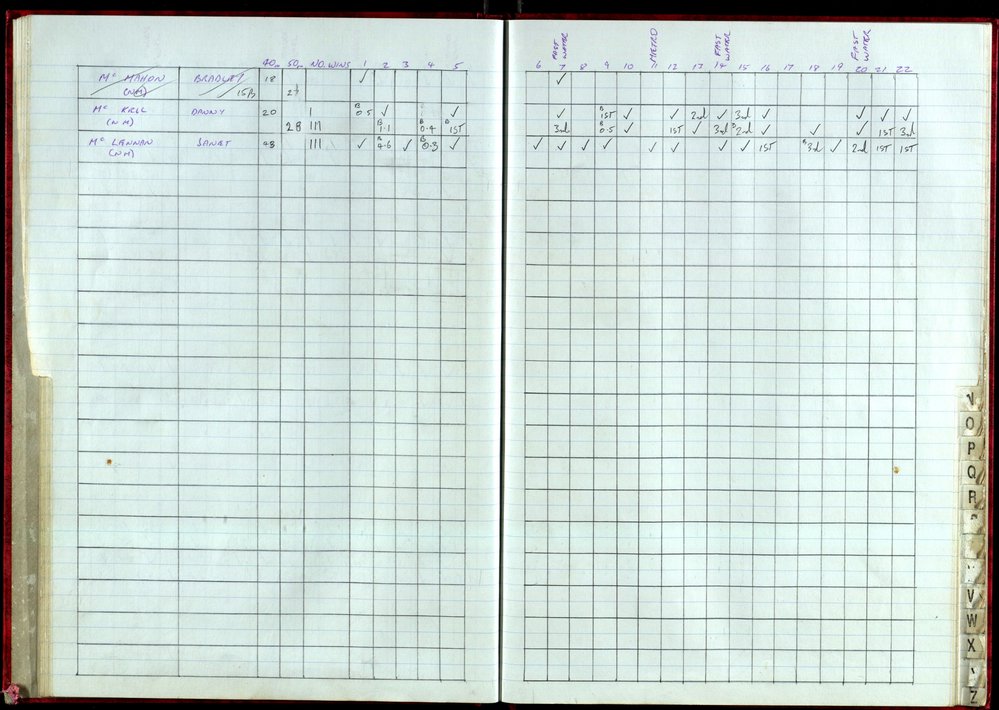 40m 50m NO. WINS 1 2 3 4 5
FAST WATER METRO FAST WATER FAST WATER
6 7 8 9 10 11 12 13 14 15 16 17 18 19 20 21 22
Mc MAHON BRADLEY 18 ✓ ✓
(NM) 15/3
Mc KRILL DANNY 20 I B 0.5 ✓ ✓ ✓ B 1ST ✓ ✓ 2nd ✓ 3rd ✓ ✓ ✓ ✓
(NM) 28 III B 1.1 B 0.4 B 1ST 3rd B 0.5 ✓ 1ST ✓ 3rd B 2nd ✓ ✓ ✓ 1ST 3rd
Mc LENNAN JANET 48 III ✓ B 4.6 ✓ B 0.3 ✓ ✓ ✓ ✓ ✓ ✓ ✓ ✓ ✓ 1ST B 3rd ✓ 2nd 1ST 1ST
(NM)
O
P
Q
R
V
W
X
Z